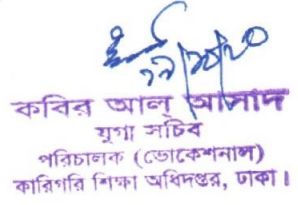 ১৯/১০/২০
কবির আল্ আসাদ
যুগ্ম সচিব
পরিচালক (ভোকেশনাল)
কারিগরি শিক্ষা অধিদপ্তর, ঢাকা।